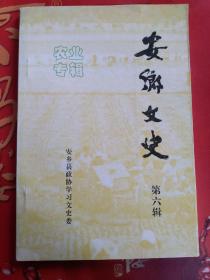 农业
专辑
安乡文史
第六辑
安乡县政协学习文史委